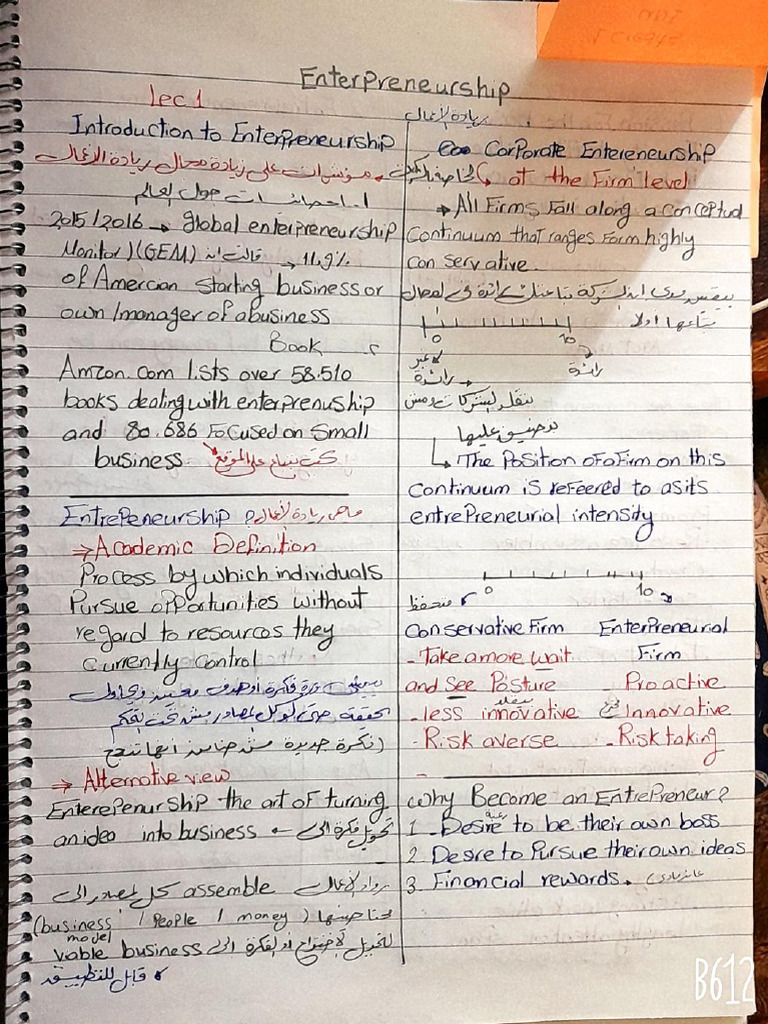 Enterpreneurship
Lec.1
Introduction to Enterpreneurship
مؤشرات على زيادة مجال ريادة الأعمال
1- احصائيات حول العالم
2015/2016 → global enterpreneurship
Monitor)(GEM) قالت ان → 11.9%
of Amercian starting business or
own/manager of a business
Book
Amzon.com lists over 58.510
books dealing with enterprenuship
and 80.686 Focused on Small
business كتب تتباع على الموقع
EntrePeneurship ؟ ماهي ريادة الأعمال
⇒ Academic Definition
Process by which individuals
Pursue opportunities without
regard to resources they
Currently control
فكرة او هدف معين ويحاول
(فكرة جديدة مش ضامن انها تنجح
→ Alternative view
EnterePenurship the art of turning
an idea into business ← تحويل فكرة الى
رواد الأعمال assemble كل المصادر الى
محتاجينها (business model / People / money)
للتحويل الاختراع او الفكرة الى viable business
قابل للتطبيق
ريادة الأعمال
Corporate Entereneurship
at the Firm level
→ All Firms Fall along a conceptual
Continuum that ranges form highly
conservative.
بيقيس مدى الشركة بتاعتك رائدة في اعمال
بتاعها اولا
0 10
غير رائدة
رائدة
بتقلد الشركات ومش
↳ The Position of a Firm on this
Continuum is refeered to as its
entrePreneurial intensity
0 10
متحفظ
Conservative Firm EnterPreneurial
- Take a more wait Firm
and See Posture Proactive
بتقلد
- less innovative Innovative
- Risk averse - Risk taking
-
Why Become an EntrePreneur?
1 - Desire to be their own boss
2 - Desre to Pursue their own ideas
3 - Financial rewards.
B612